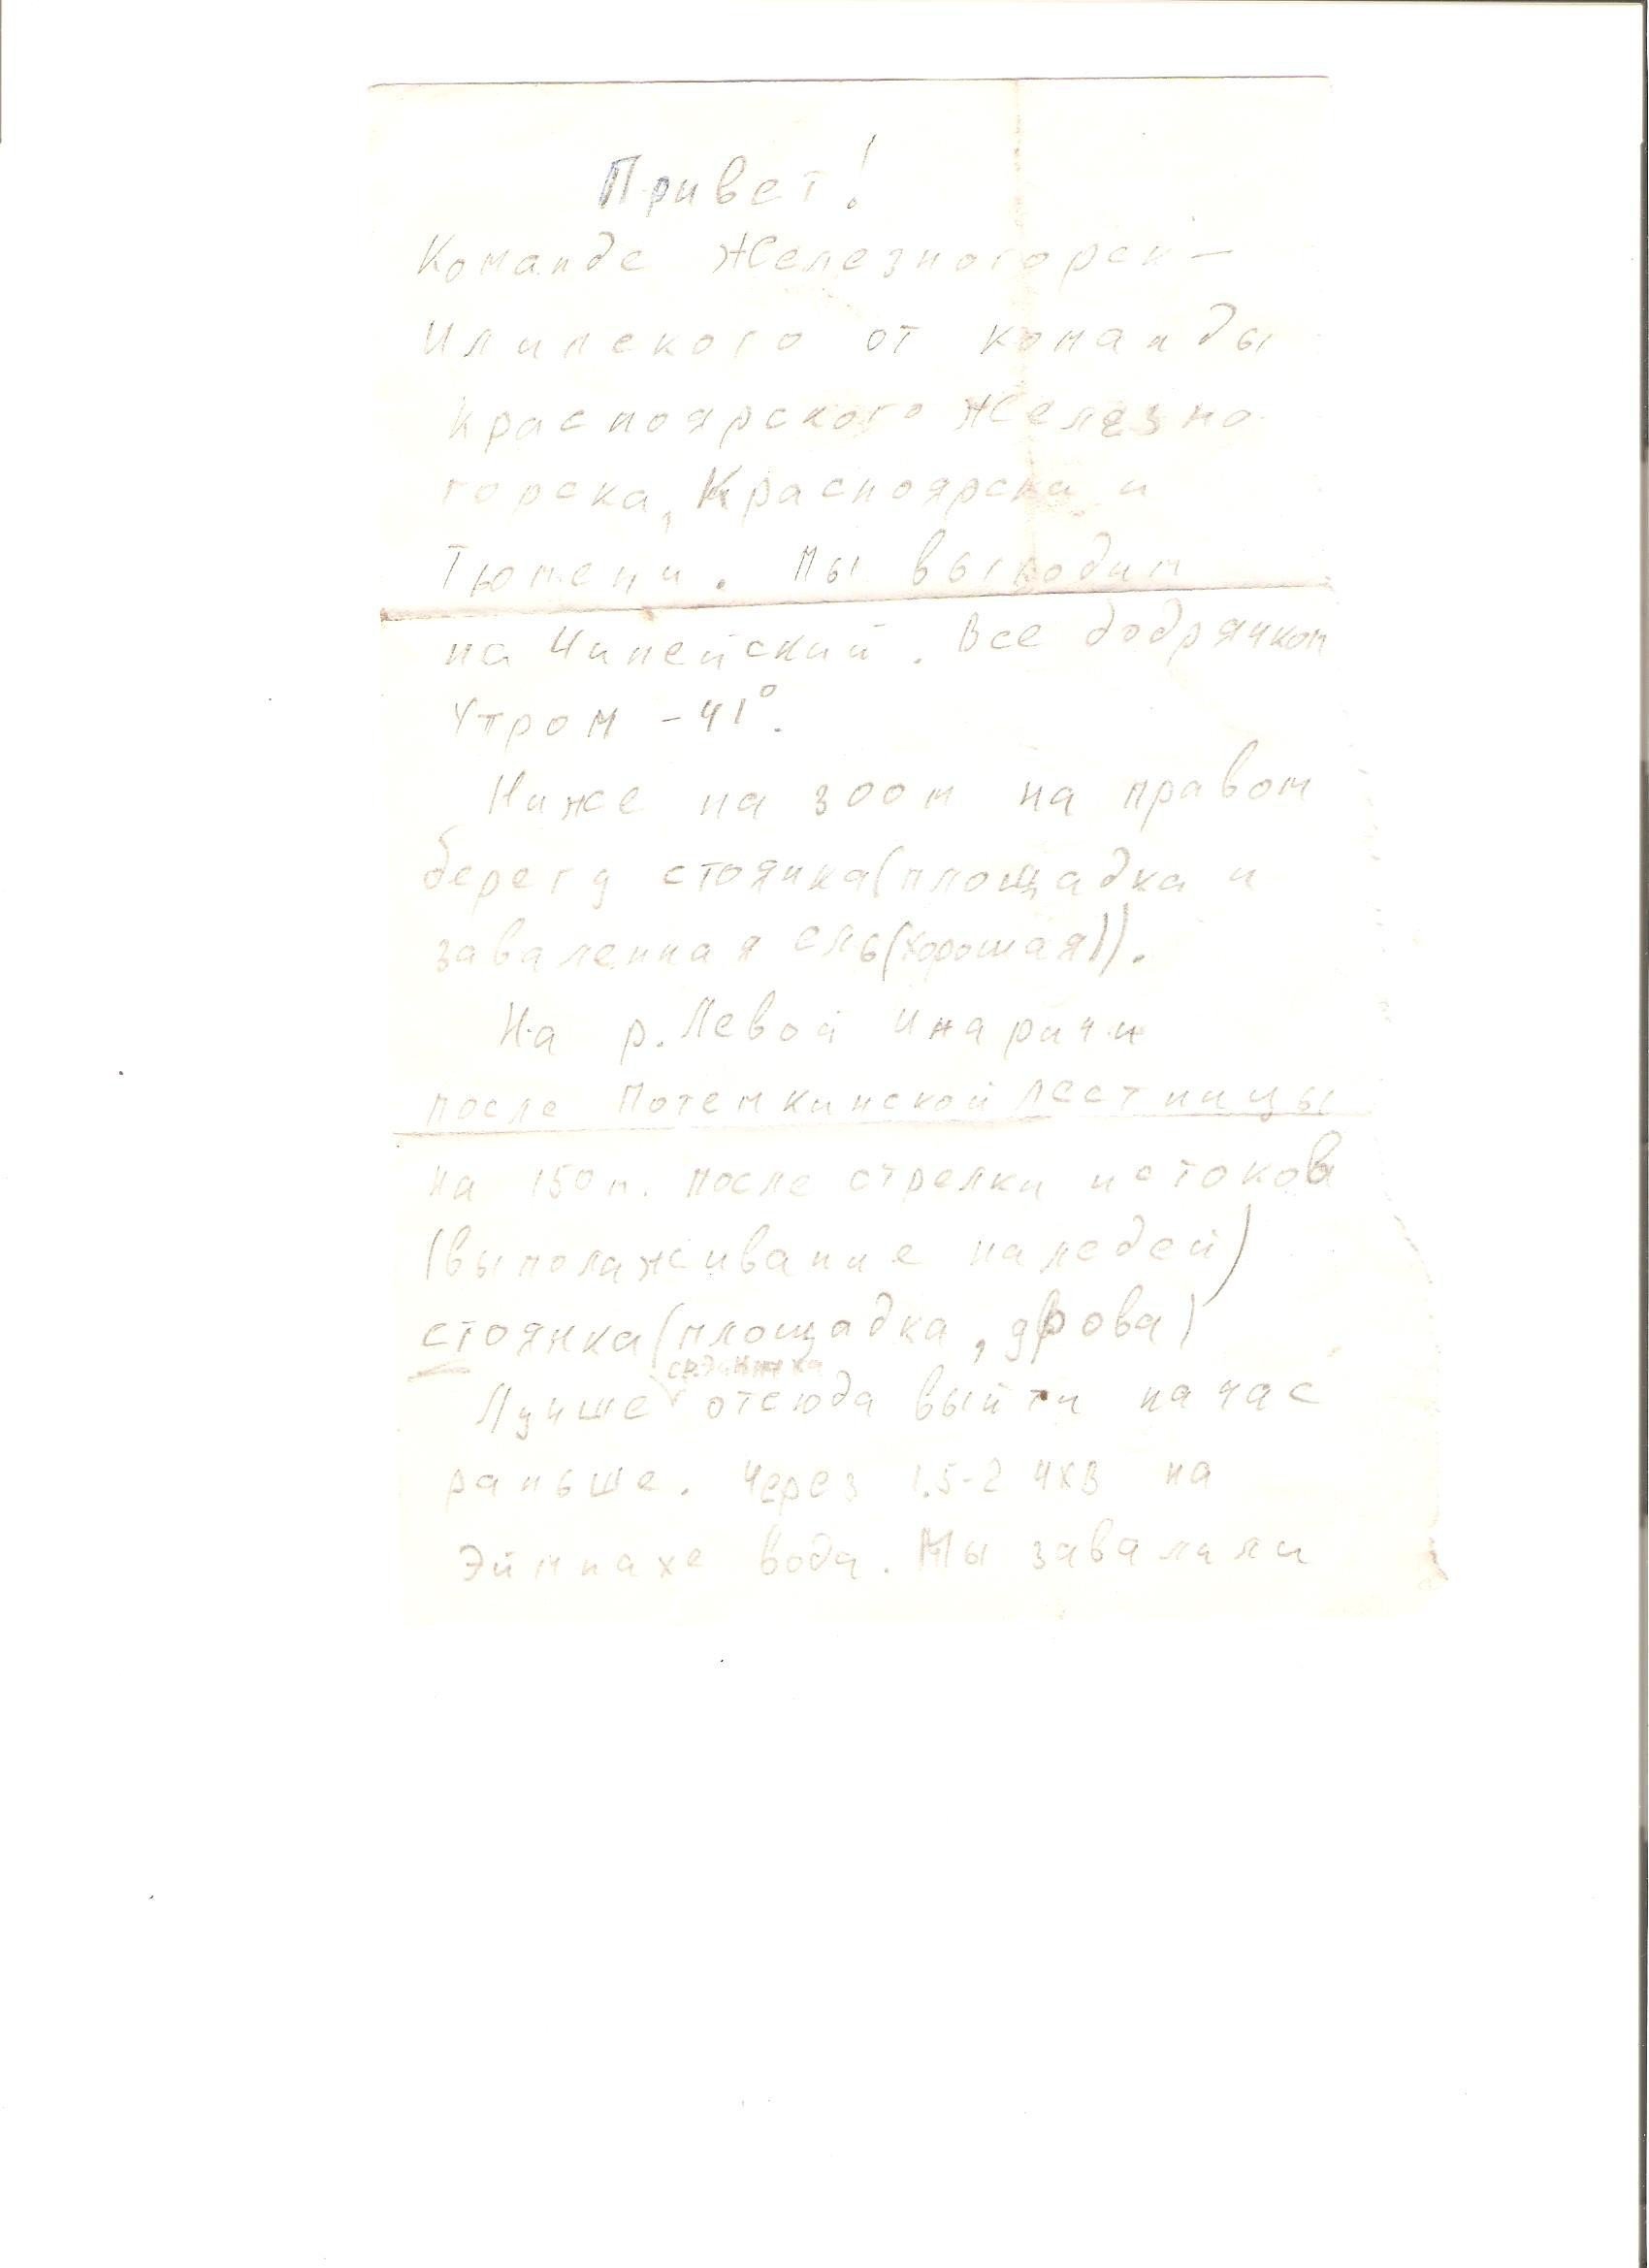 Привет!
Команде Железногорск-
Илимского от команды
Красноярского Железно-
горска, Красноярска и
Тюмени. Мы выходим
на Чинейский. Все бодрячком
Утром -41°.
Ниже на 300м на правом
берегу стоянка(площадка и
заваленная ель(хорошая)).
На р. Левой Инаричи
после Потемкинской лестницы
на 150м. после стрелки истоков
(выполаживание наледей)
стоянка(площадка, дрова)
Лучше отсюда выйти на час
раньше. Через 1.5-2 ЧХВ на
Эймнахе вода. Мы завалили